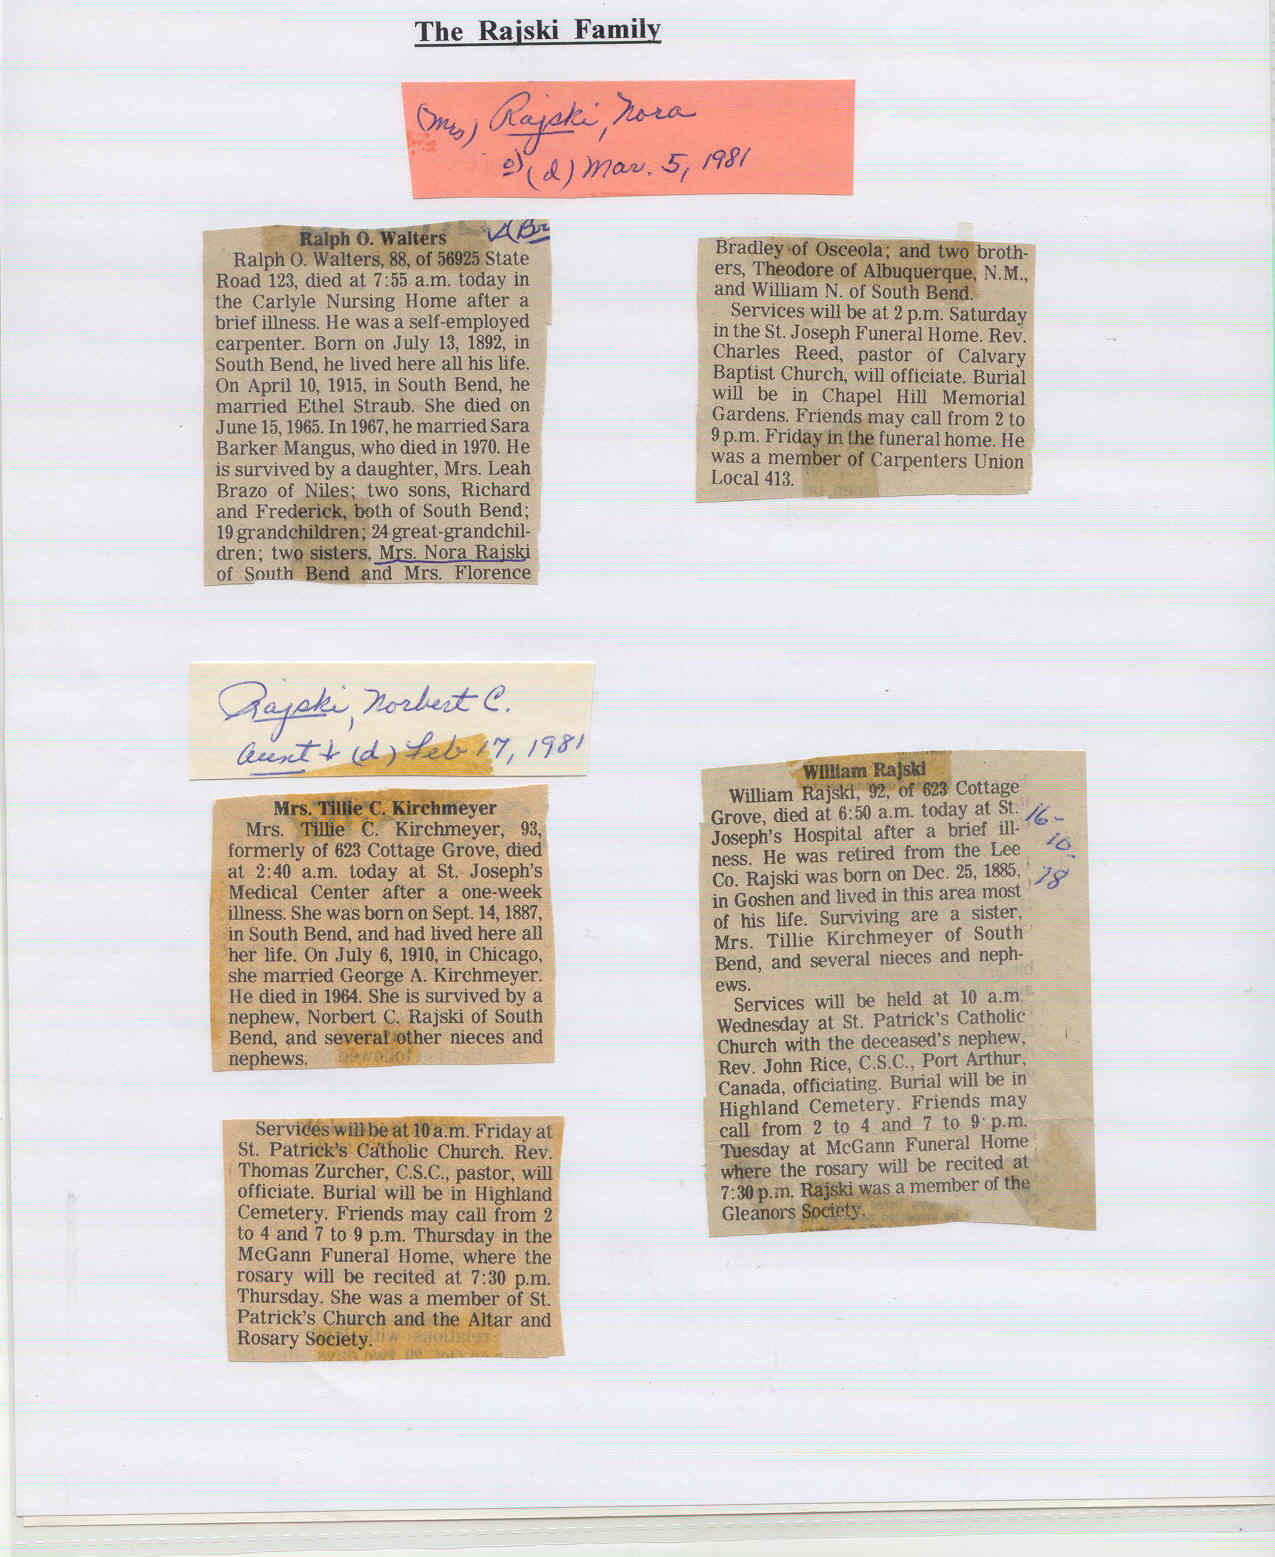 The Rajski Family
(Mrs) Rajski, Nora
(d) Mar. 5, 1981
Ralph O. Walters
Ralph O. Walters, 88, of 56925 State
Road 123, died at 7:55 a.m. today in
the Carlyle Nursing Home after a
brief illness. He was a self-employed
carpenter. Born on July 13, 1892, in
South Bend, he lived here all his life.
On April 10, 1915, in South Bend, he
married Ethel Straub. She died on
June 15, 1965. In 1967, he married Sara
Barker Mangus, who died in 1970. He
is survived by a daughter, Mrs. Leah
Brazo of Niles; two sons, Richard
and Frederick, both of South Bend;
19 grandchildren; 24 great-grandchil-
dren; two sisters, Mrs. Nora Rajski
of South Bend and Mrs. Florence
Bradley of Osceola; and two broth-
ers, Theodore of Albuquerque, N.M.,
and William N. of South Bend.
Services will be at 2 p.m. Saturday
in the St. Joseph Funeral Home. Rev.
Charles Reed, pastor of Calvary
Baptist Church, will officiate. Burial
will be in Chapel Hill Memorial
Gardens. Friends may call from 2 to
9 p.m. Friday in the funeral home. He
was a member of Carpenters Union
Local 413.
Rajski, Norbert C.
Aunt (d) Feb 17, 1981
Mrs. Tillie C. Kirchmeyer
Mrs. Tillie C. Kirchmeyer, 93,
formerly of 623 Cottage Grove, died
at 2:40 a.m. today at St. Joseph's
Medical Center after a one-week
illness. She was born on Sept. 14, 1887,
in South Bend, and had lived here all
her life. On July 6, 1910, in Chicago,
she married George A. Kirchmeyer.
He died in 1964. She is survived by a
nephew, Norbert C. Rajski of South
Bend, and several other nieces and
nephews.
Services will be at 10 a.m. Friday at
St. Patrick's Catholic Church. Rev.
Thomas Zurcher, C.S.C., pastor, will
officiate. Burial will be in Highland
Cemetery. Friends may call from 2
to 4 and 7 to 9 p.m. Thursday in the
McGann Funeral Home, where the
rosary will be recited at 7:30 p.m.
Thursday. She was a member of St.
Patrick's Church and the Altar and
Rosary Society.
William Rajski
William Rajski, 92, of 623 Cottage
Grove, died at 6:50 a.m. today at St.
Joseph's Hospital after a brief ill-
ness. He was retired from the Lee
Co. Rajski was born on Dec. 25, 1885,
in Goshen and lived in this area most
of his life. Surviving are a sister,
Mrs. Tillie Kirchmeyer of South
Bend, and several nieces and neph-
ews.
Services will be held at 10 a.m.
Wednesday at St. Patrick's Catholic
Church with the deceased's nephew,
Rev. John Rice, C.S.C., Port Arthur,
Canada, officiating. Burial will be in
Highland Cemetery. Friends may
call from 2 to 4 and 7 to 9 p.m.
Tuesday at McGann Funeral Home
where the rosary will be recited at
7:30 p.m. Rajski was a member of the
Gleanors Society.
16-
10.
78